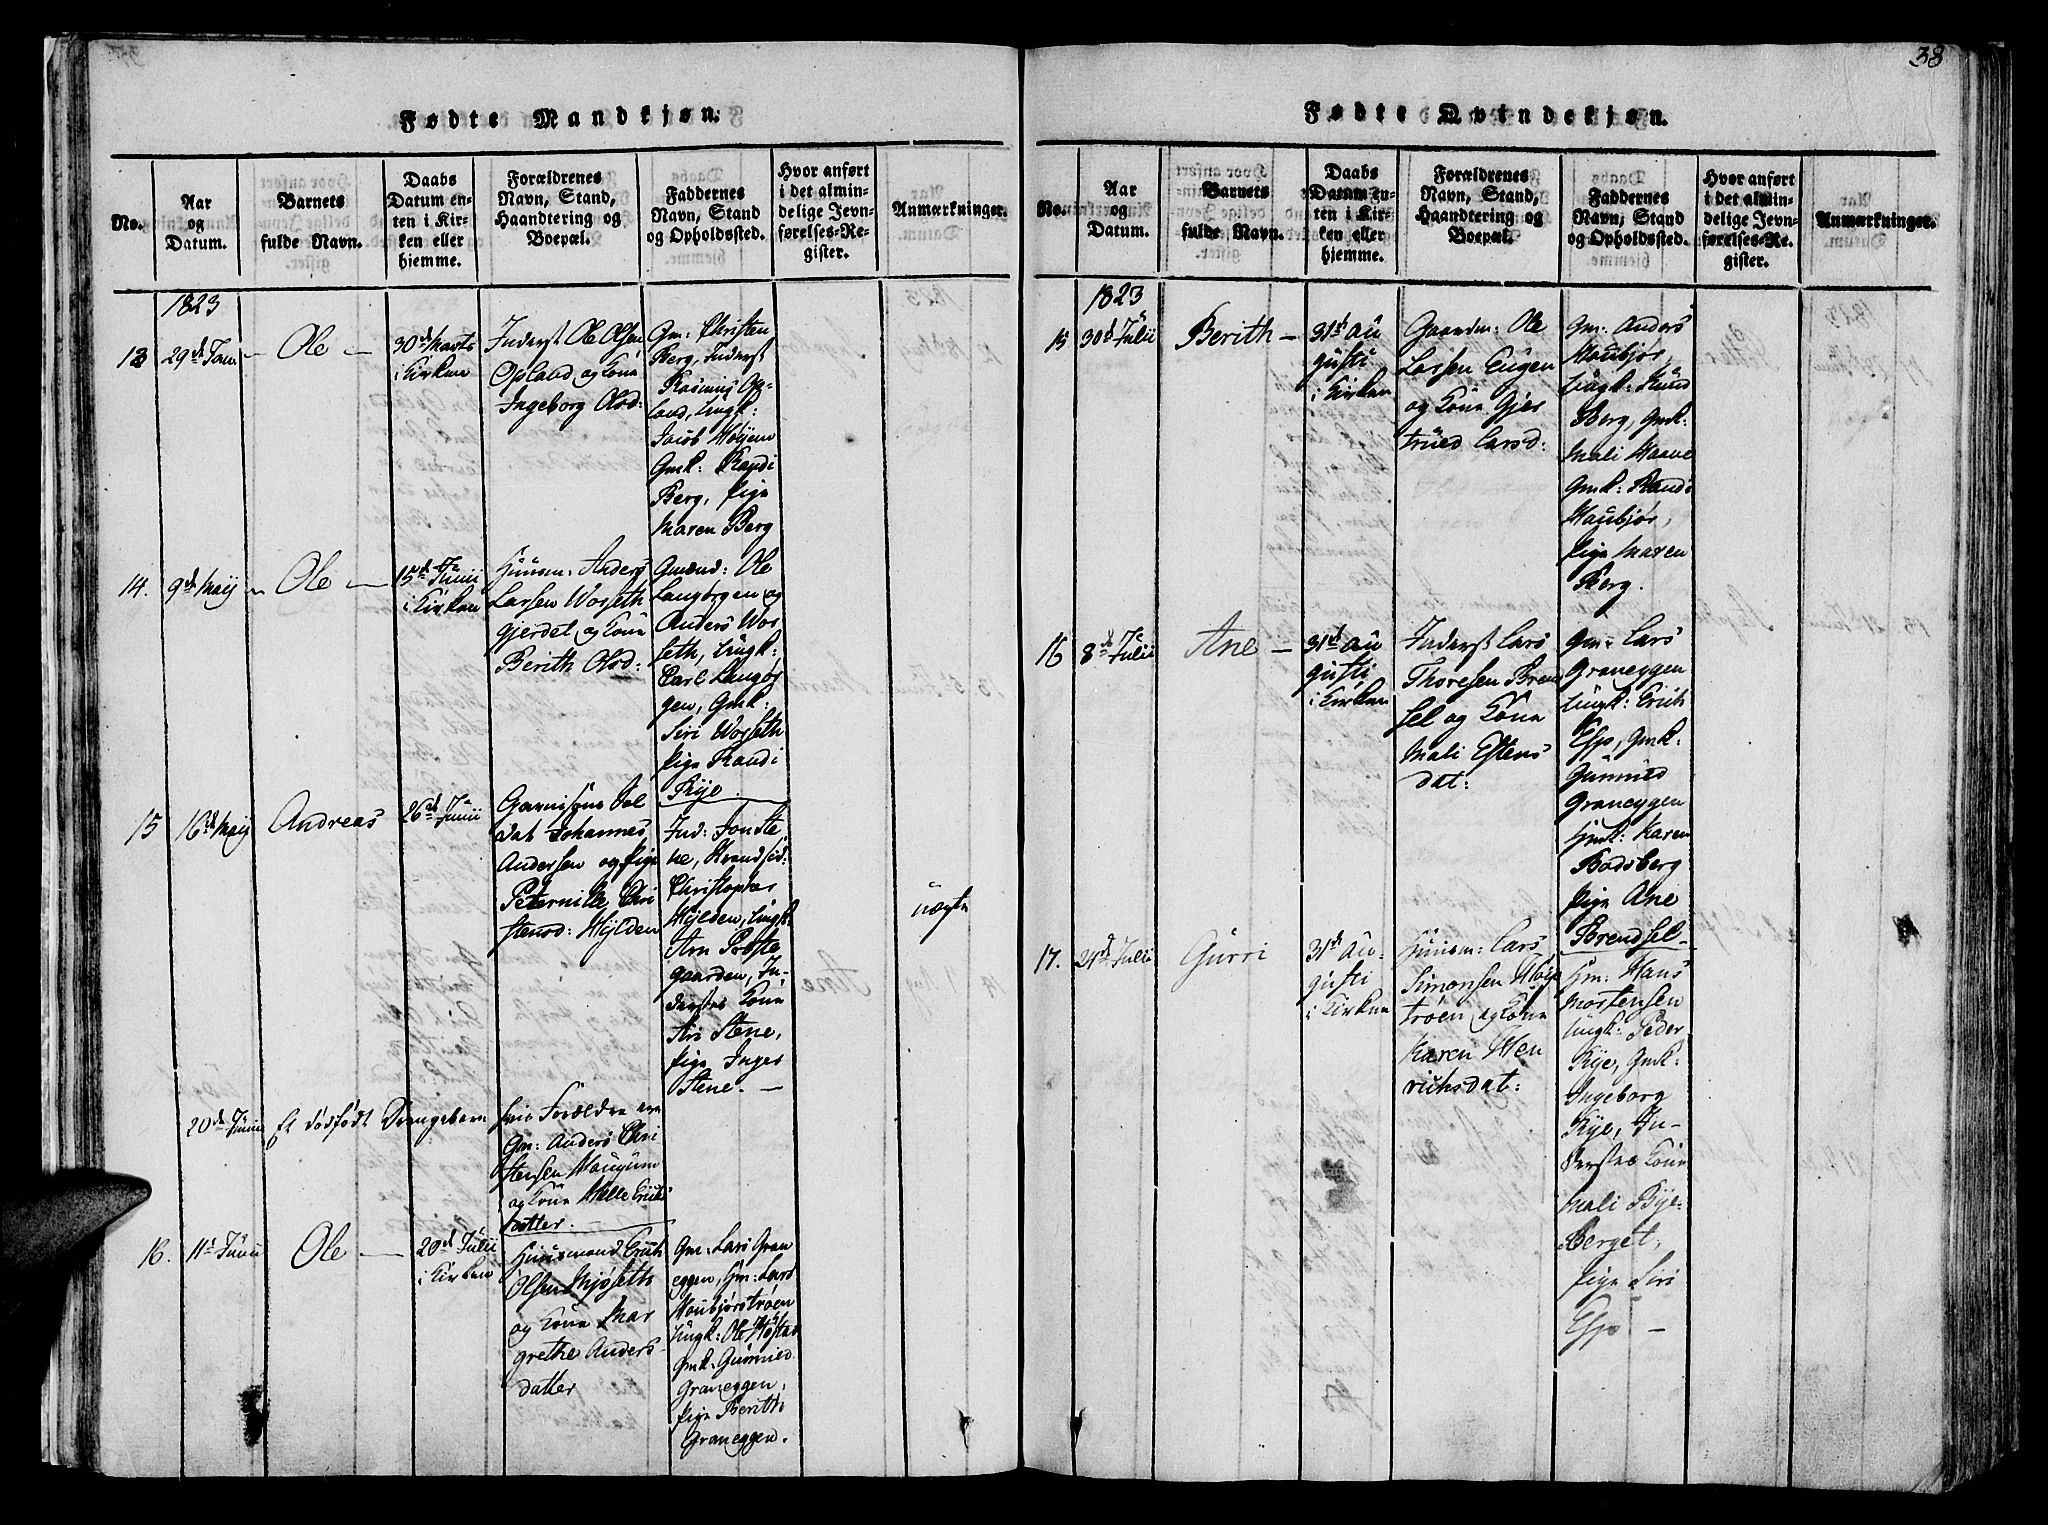 38
Fødte Mandkjøn.
No.
Aar
og
Datum.
Barnets
fulde Navn.
Daabs
Datum en-
ten i Kir-
ken eller
hjemme.
Forældrenes
Navn, Stand,
Haandtering og
Boepæl.
Faddernes
Navn, Stand
og Opholdssted.
Hvor anført
i det almin-
delige Jevn-
førelses-Re-
gister.
Anmærkninger.
1823
13
29de Jan.
Ole
30de Marts
i Kirken
Inderst Ole Olsen
Opland og Kone
Ingeborg Olsd:
Gm: Christen
Berg, Inderst
Rasmus Op-
land, Ungk:
Jacob Høljem
Gmk: Randi
Berg, Pige
Maren Berg
14.
9de Maij
Ole
15de Junii
i Kirken
Huusm: Anders
Larsen Worseth
gjerdet og Kone
Berith Olsd:
Gmænd: Ole
Langørgen og
Anders Wor
seth, Ungk:
Carl Langør
gen, Gmk:
Siri Worseth
Pige Randi
Kye.
15
16de Maij
Andreas
26de Junii
Garnisons Sol
dat Johannes
Andersen og Pige
Peternille Chri
stensd: Hylden
Ind: Jon Ste
ne,
Christopher
Hylden, Ungk:
Arn Præste
gaarden, In-
derstes Kone
Ari Stene,
Pige Inger
Stene.
uægte
20de Junii
Et dødfødt Drengebarn
hvis Forældre ere
Gm: Anders Chri
stensen Haugum
og Kone Helle Erichs
datter.
16.
11te Junii
Ole
20de Julii
i Kirken
Huusmand Erich
Olsen Mjøseth
og Kone Mar
grethe Anders-
datter
Gm: Lars Gran
eggen, Hm: Lars
Haubjørstrøen
Ungk: Ole Høstad
Gmk: Gunnild
Graneggen,
Pige Berith
Graneggen.
Fødte Qvindekjøn.
No.
Aar
og
Datum.
Barnets
fulde Navn.
Daabs
Datum en-
ten i Kir-
ken eller
hjemme.
Forældrenes
Navn, Stand,
Haandtering og
Boepæl.
Faddernes
Navn, Stand
og Opholdssted.
Hvor anført
i det almin-
delige Jevn-
førelses-Re-
gister.
Anmærkninger.
1823
15
30de Julii
Berith
31de Au
gusti
i Kirken
Gaardm: Ole
Larsen Eugen
og Kone Gjer
trued Larsd:
Gm: Anders
Haubjør,
Ungk: Knud
Berg, Gmk:
Mali Haave
Gmk: Randi
Haubjør,
Pige Maren
Berg.
16
8de Julii
Ane
31de Au
gusti
i Kirken
Inderst Lars
Thoresen Bren
sel og Kone
Mali Estens
dat:
Gm: Lars
Graneggen
Ungk: Erich
Esp, Gmk:
Gunnild
Graneggen
Hmk: Karen
Bodsberg
Pige Ane
Brendsel
17.
24de Julii
Gurri
31de Au-
gusti
i Kirken
Huusm: Lars
Simonsen
trøen og Kone
Karen Hen
richsdat:
Hm: Hans
Mortensen
Ungk: Peder
Kye, Gmk:
Ingeborg
Kye, In-
derstes Kone
Mali Bye-
Berget,
Pige Siri
Esp.